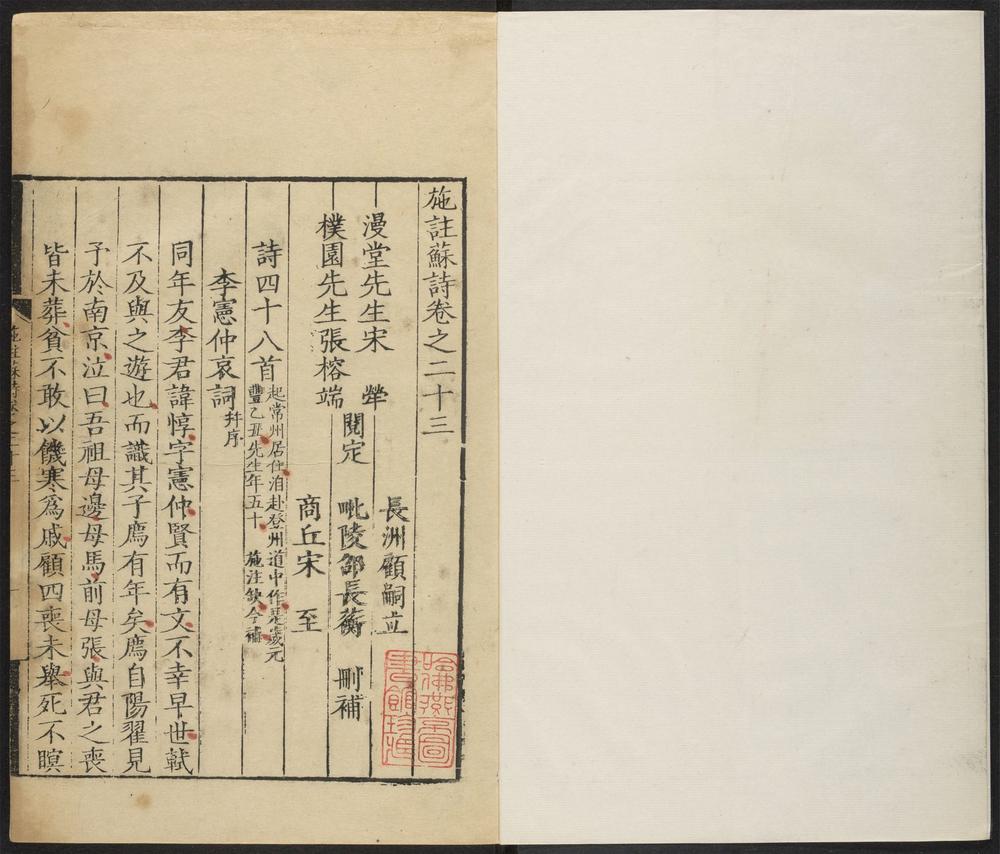 施註蘇詩卷之二十三
長洲顧嗣立
漫堂先生宋犖
閱定 毗陵邵長蘅 刪補
樸園先生張榕端
商丘宋至
詩四十八首 起常州居住洎赴登州道中作是歲元
豐乙丑先生年五十 施注缺今補
李憲仲哀詞 幷序
同年友李君諱惇字憲仲賢而有文不幸早世軾
不及與之遊也而識其子廌有年矣廌自陽翟見
予於南京泣曰吾祖母邊母馬前母張與君之喪
皆未葬貧不敢以饑寒爲戚顧四喪未舉死不瞑
施註蘇詩卷之二十三
哈佛燕京圖
書館珍藏